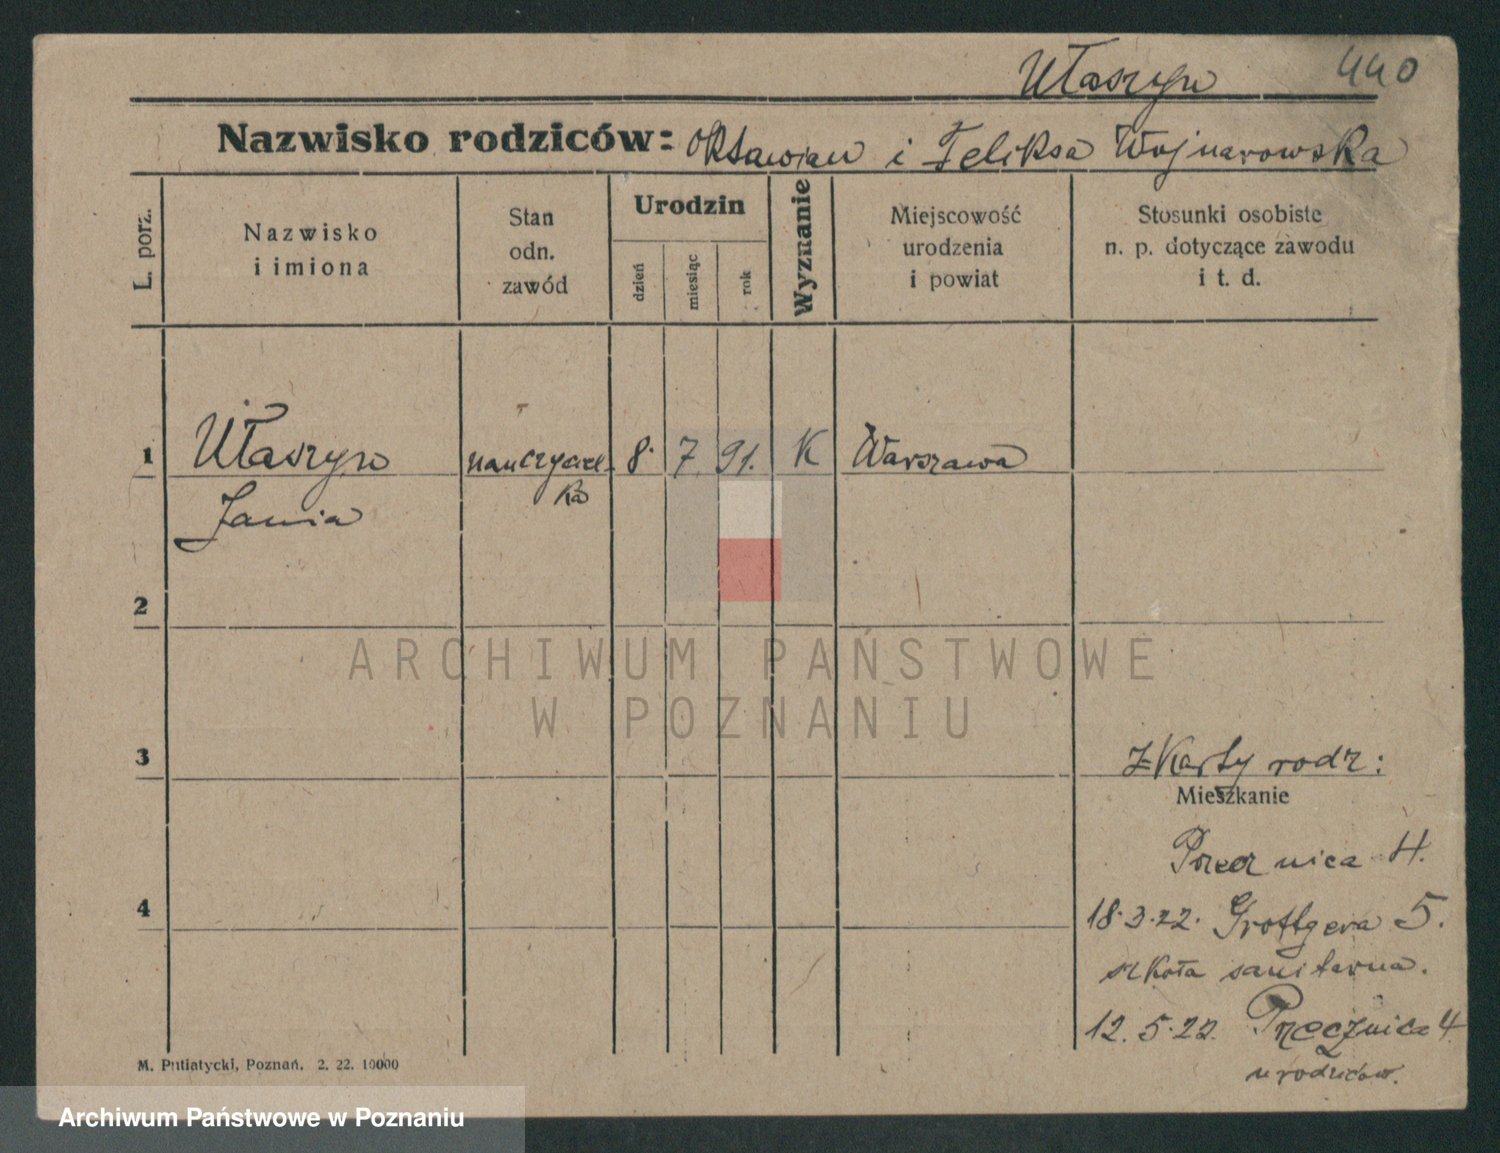 Ułaszyn
440
Nazwisko rodziców: Oktawian i Feliksa Wojnarowska
L. porz.
Nazwisko
i imiona
Stan
odn.
zawód
Urodzin
dzień
miesiąc
rok
Wyznanie
Miejscowość
urodzenia
i powiat
Stosunki osobiste
n. p. dotyczące zawodu
i t. d.
1 Ułaszyn nauczyciel- 8. 7. 91. K Warszawa
ka
Jania
2
3
z Karty rodz:
Mieszkanie
Przecznica 4.
4
18.3.22. Grottgera 5.
szkoła sanitarna.
12.5.22. Przecznica 4
u rodziców.
M. Putiatycki, Poznań. 2. 22. 10000
ARCHIWUM PAŃSTWOWE
W POZNANIU
Archiwum Państwowe w Poznaniu